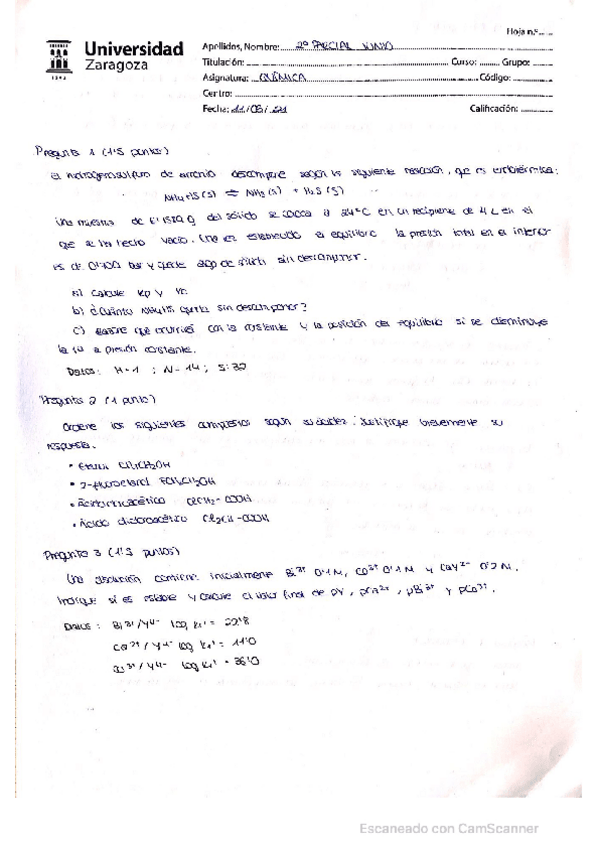 Hoja n.º
Universidad
Zaragoza
1542
Apellidos, Nombre: 2º PARCIAL JUNIO
Titulación: Curso: Grupo:
Asignatura: QUÍMICA Código:
Centro:
Fecha: Calificación:
Pregunta 1 (1'5 puntos)
El hidrogenosulfuro de amonio descompone según la siguiente reacción, que es endotérmica:
NH4HS(s) ⇌ NH3(g) + H2S(g)
Una muestra de g del sólido se coloca a 24ºC en un recipiente de 4 L en el
que se ha hecho vacío. Una vez establecido el equilibrio la presión total en el interior
es de bar y queda algo de sólido sin descomponer.
a) Calcule Kp y Kc
b) ¿Cuánto NH4HS queda sin descomponer?
c) que ocurrirá con la constante y la posición del equilibrio si se disminuye
la tª a presión constante.
Datos: H=1 ; N=14 ; S:32
Pregunta 2 (1 punto)
Ordene los siguientes compuestos según su acidez. Justifique brevemente su
respuesta.
• Etanol CH3CH2OH
• 2-fluoroetanol FCH2CH2OH
• Ácido cloroacético ClCH2-COOH
• Ácido dicloroacético Cl2CH-COOH
Pregunta 3 (1'5 puntos)
Una disolución contiene inicialmente Bi3+ 0'1 M, Co3+ 0'1 M y CaY2- 0'2 M.
Indique si es estable y calcule el valor final de pY, pCa2+, pBi3+ y pCo3+.
Datos: Bi3+/Y4- log Kf' = 22'8
Ca2+/Y4- log Kf' = 11'0
Co3+/Y4- log Kf' = 36'0
Escaneado con CamScanner